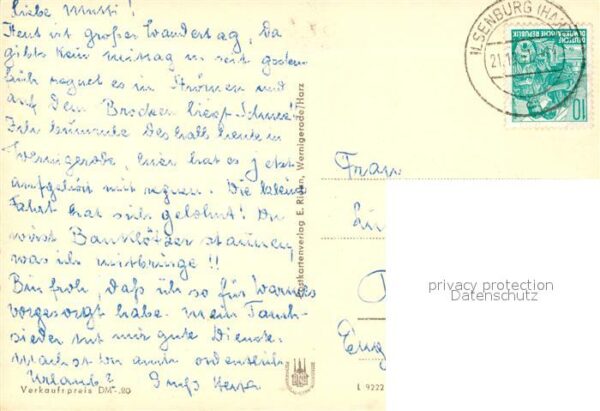 Liebe Mutti!
Heut ist großer Wandertag, Da
gibts kein Mittag u. seit gestern
früh regnet es in Strömen und
auf dem Brocken liegt Schnee!
Ich bummle deshalb heute in
Wernigerode, hier hat es jetzt
aufgehört mit regnen. Die kleine
Fahrt hat sich gelohnt! Du
wirst Bauklötzer staunen,
was ich mitbringe!!
Bin froh, daß ich so für warmes
vorgesorgt habe. Mein Tauch-
sieder tut mir gute Dienste.
Machst Du auch ordentlich
Urlaub? Gruß
Verkaufspreis DM -.20
Postkartenverlag E. Riehn, Wernigerode/Harz
ILSENBURG (HARZ)
DEUTSCHE
DEMOKRATISCHE REPUBLIK
10
Frau
L 9222
privacy protection
Datenschutz